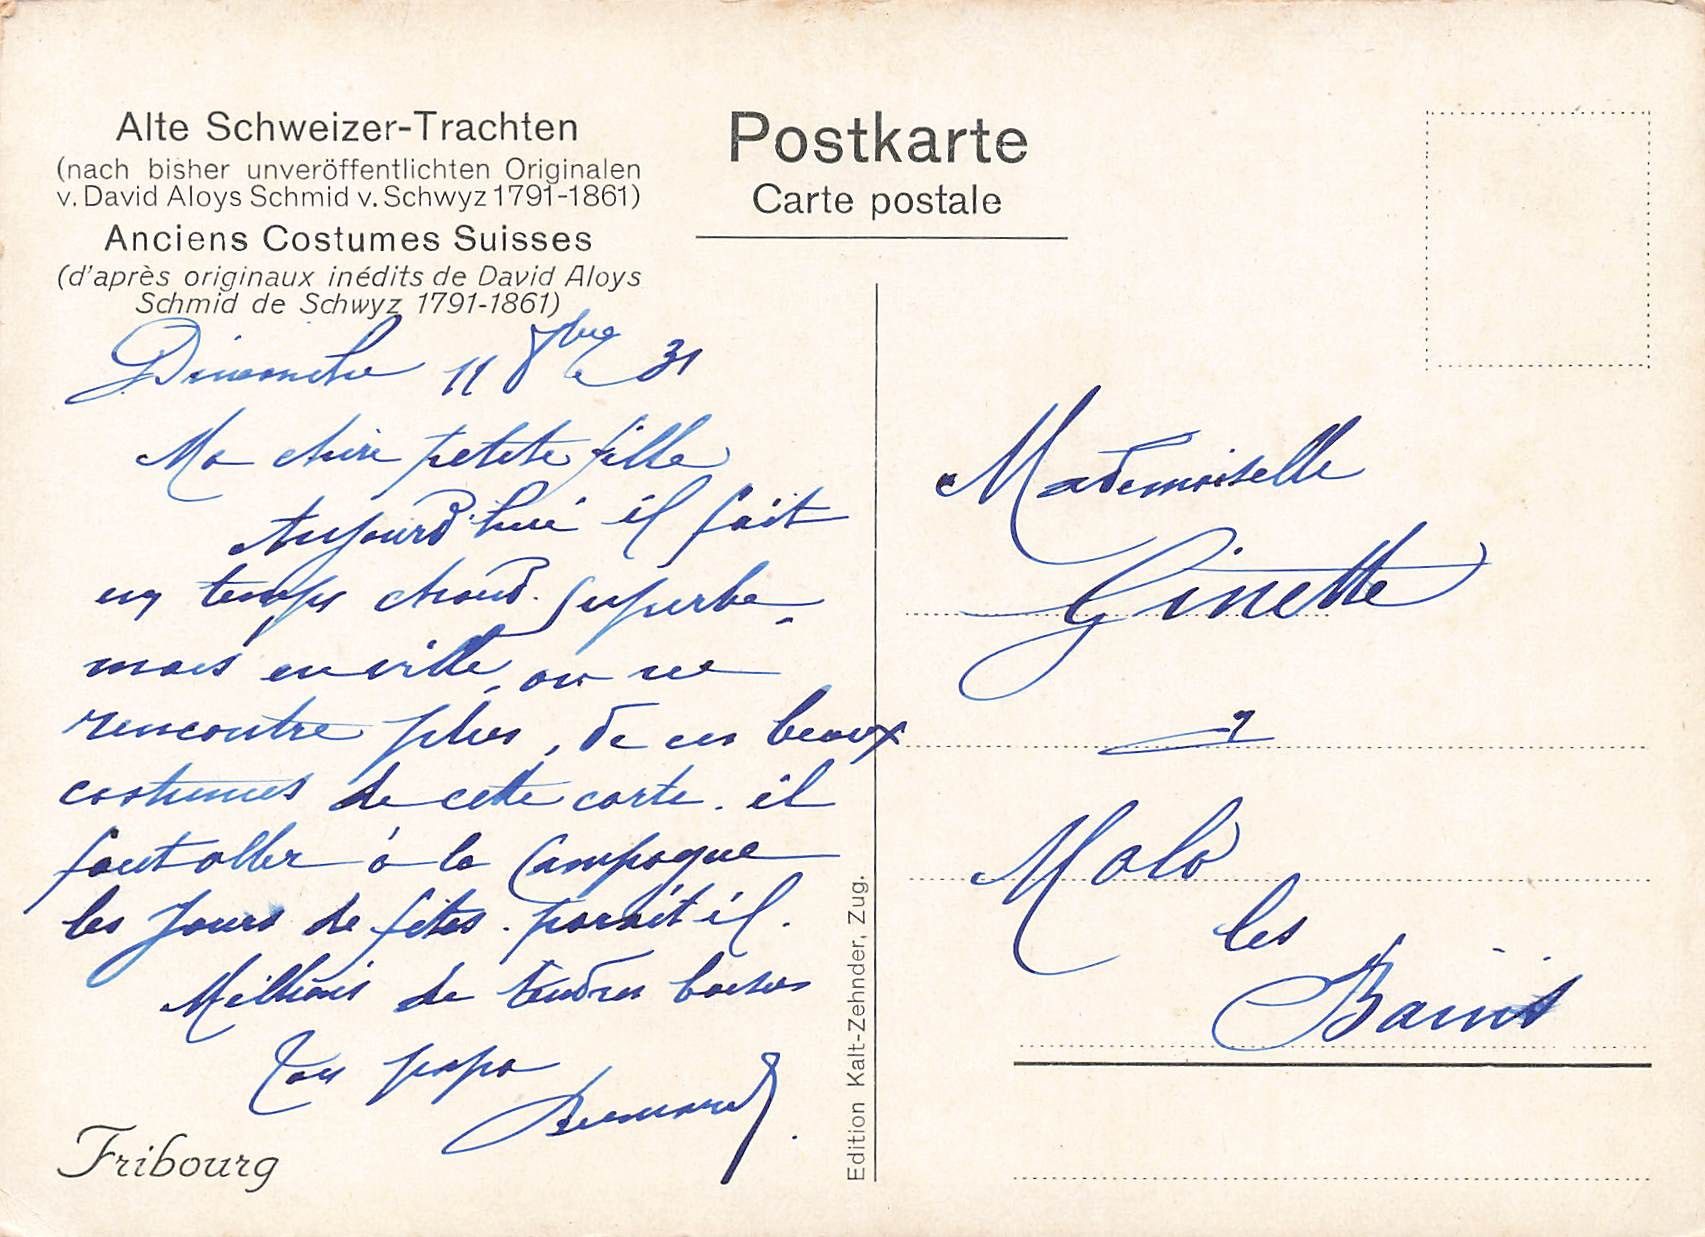 Alte Schweizer-Trachten
(nach bisher unveröffentlichten Originalen
v. David Aloys Schmid v. Schwyz 1791-1861)
Anciens Costumes Suisses
(d'après originaux inédits de David Aloys
Schmid de Schwyz 1791-1861)
Postkarte
Carte postale
Dimanche 11 8bre 31
Ma chère petite fille
Aujourd'hui il fait
un temps chaud. superbe,
mais en ville, on ne
rencontre plus, de ces beaux
costumes de cette carte. il
faut aller à la Campagne
les jours de fêtes. paraît il.
Millions de tendres baisers
Ton papa
Bernard.
Fribourg
Edition Kalt-Zehnder, Zug.
Mademoiselle
Ginette
Malo
les
Bains